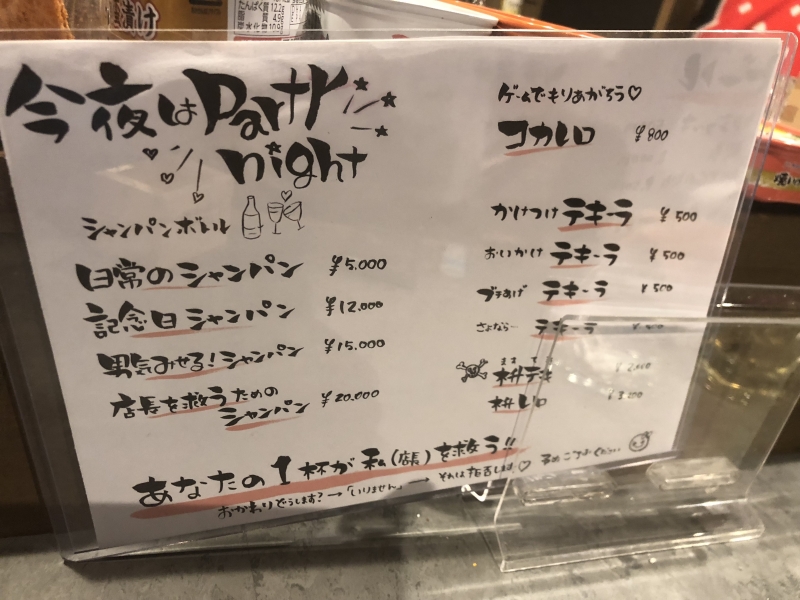 漬け
たんぱく質 12.2g
脂質 4.9
今夜はParty
night
シャンパンボトル
日常のシャンパン ¥5,000
記念日シャンパン ¥12,000
男気みせる!シャンパン ¥15,000
店長を救うための
シャンパン ¥20,000
ゲームでもりあがろう♡
コカレロ ¥800
かけつけテキーラ ¥500
おいかけテキーラ ¥500
ブチあげテキーラ ¥500
さよならテキーラ
枡テキ
枡レロ
あなたの1杯が私(店長)を救う!!
おかわりどうします?→「いりません」→それは指名します♡